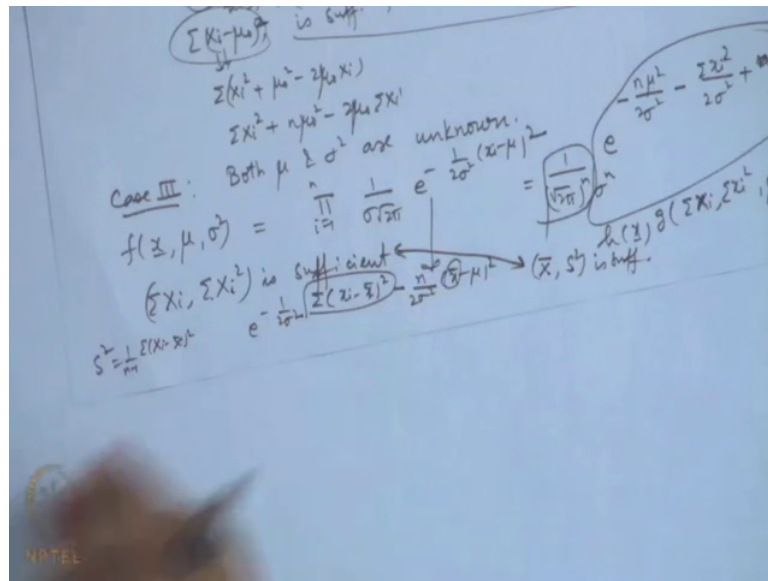 Σ(Xi-μ₀)² is suff.
Σ(Xi² + μ₀² - 2μ₀Xi)
ΣXi² + nμ₀² - 2μ₀ΣXi
Case III: Both μ & σ² are unknown.
f(x, μ, σ²) = ∏ᵢ₌₁ⁿ 1/(σ√2π) e^{-1/(2σ²) (xi-μ)²} = 1/(√2π)ⁿ σⁿ e^{-nμ²/2σ² - Σxi²/2σ² +
h(x) g(ΣXi, ΣXi²,
(ΣXi, ΣXi²) is sufficient ↔ (X̄, S²) is suff.
S² = 1/(n-1) Σ(Xi-X̄)² e^{-1/(2σ²) Σ(xi-x̄)² - n/(2σ²) (x̄-μ)²}
NPTEL